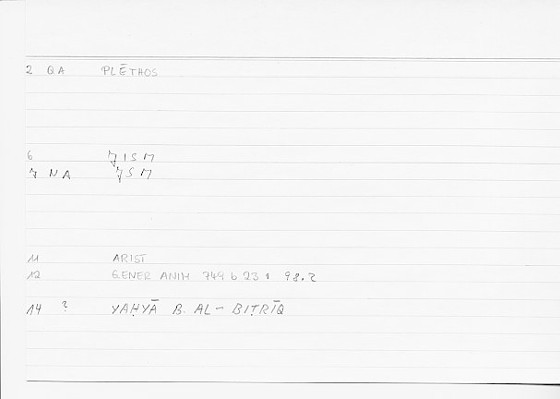 2 QA PLĒTHOS
6 ǦISM
7 NA ǦSM
11 ARIST
12 GENER ANIM 749 b 23 : 98.2
14 ? YAḤYĀ B. AL-BIṬRĪQ